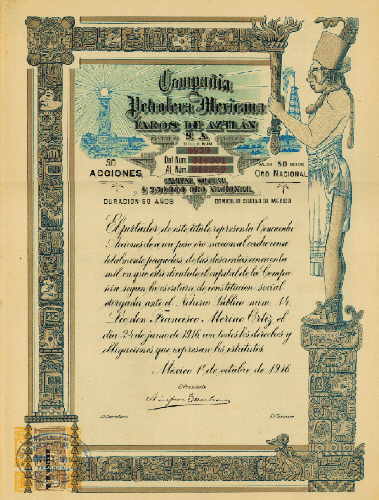 Compañia
Petrolera Mexicana
FAROS DE AZTLÁN
S. A.
50
ACCIONES
Del Núm.
Al Núm.
VALOR 50 PESOS
ORO NACIONAL
CAPITAL SOCIAL
$ 250,000 ORO NACIONAL
DURACION 50 AÑOS
DOMICILIO CIUDAD DE MEXICO
El portador de este título representa Cincuenta
Acciones de a un peso oro nacional cada una
totalmente pagadas, de las doscientas cincuenta
mil en que está dividido el capital de la Compa-
ñia, según la escritura de constitución social
otorgada ante el Notario Público núm. 14
Lic. don Francisco Moreno Ortiz el
día 24 de junio de 1916, con todos los derechos y
obligaciones que expresan los estatutos.
México 1º de octubre de 1916
El Presidente
El Secretario
El Tesorero